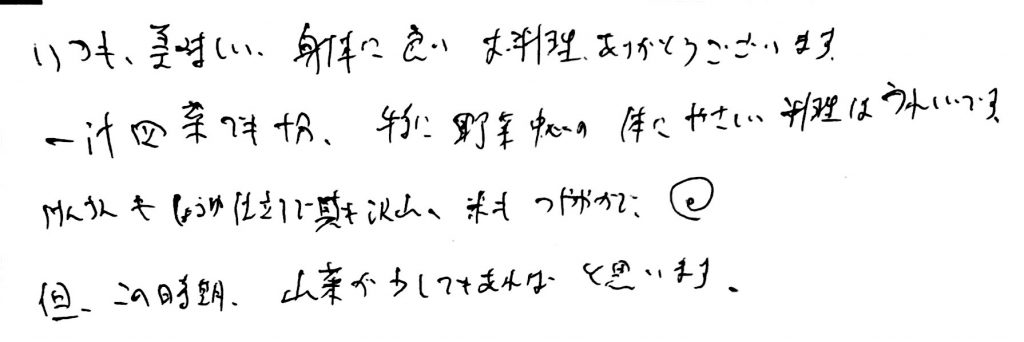 いつも、美味しい、身体に良い お料理、ありがとうございます
一汁四菜でも十分、特に野菜中心の体にやさしい料理はうれしいです
けんちんもしょうゆ仕立てで具も沢山、米もつややかで、
但、この時期、山菜が少しでもあればと思います。